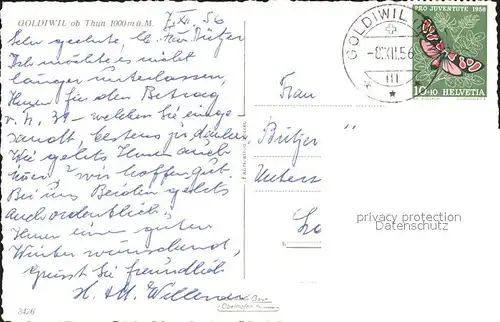 GOLDIWIL ob Thun 1000 m ü. M.
7. XII. 56
Sehr geehrte
Ich möchte es nicht
länger unterlassen,
Ihnen für den Betrag
v. Fr. welchen Sie einge-
sandt, bestens zu danken.
Wie gehts Ihnen auch
wir hoffen gut.
Bei uns Beiden gehts
auch ordentlich.
Ihnen einen guten
Winter wünschend,
Grüsst Sie freundlich
H. + M.
3426
GOLDIWIL
-8.XII.56
PRO JUVENTUTE 1956
10+10 HELVETIA
Frau
Unters
privacy protection
Datenschutz